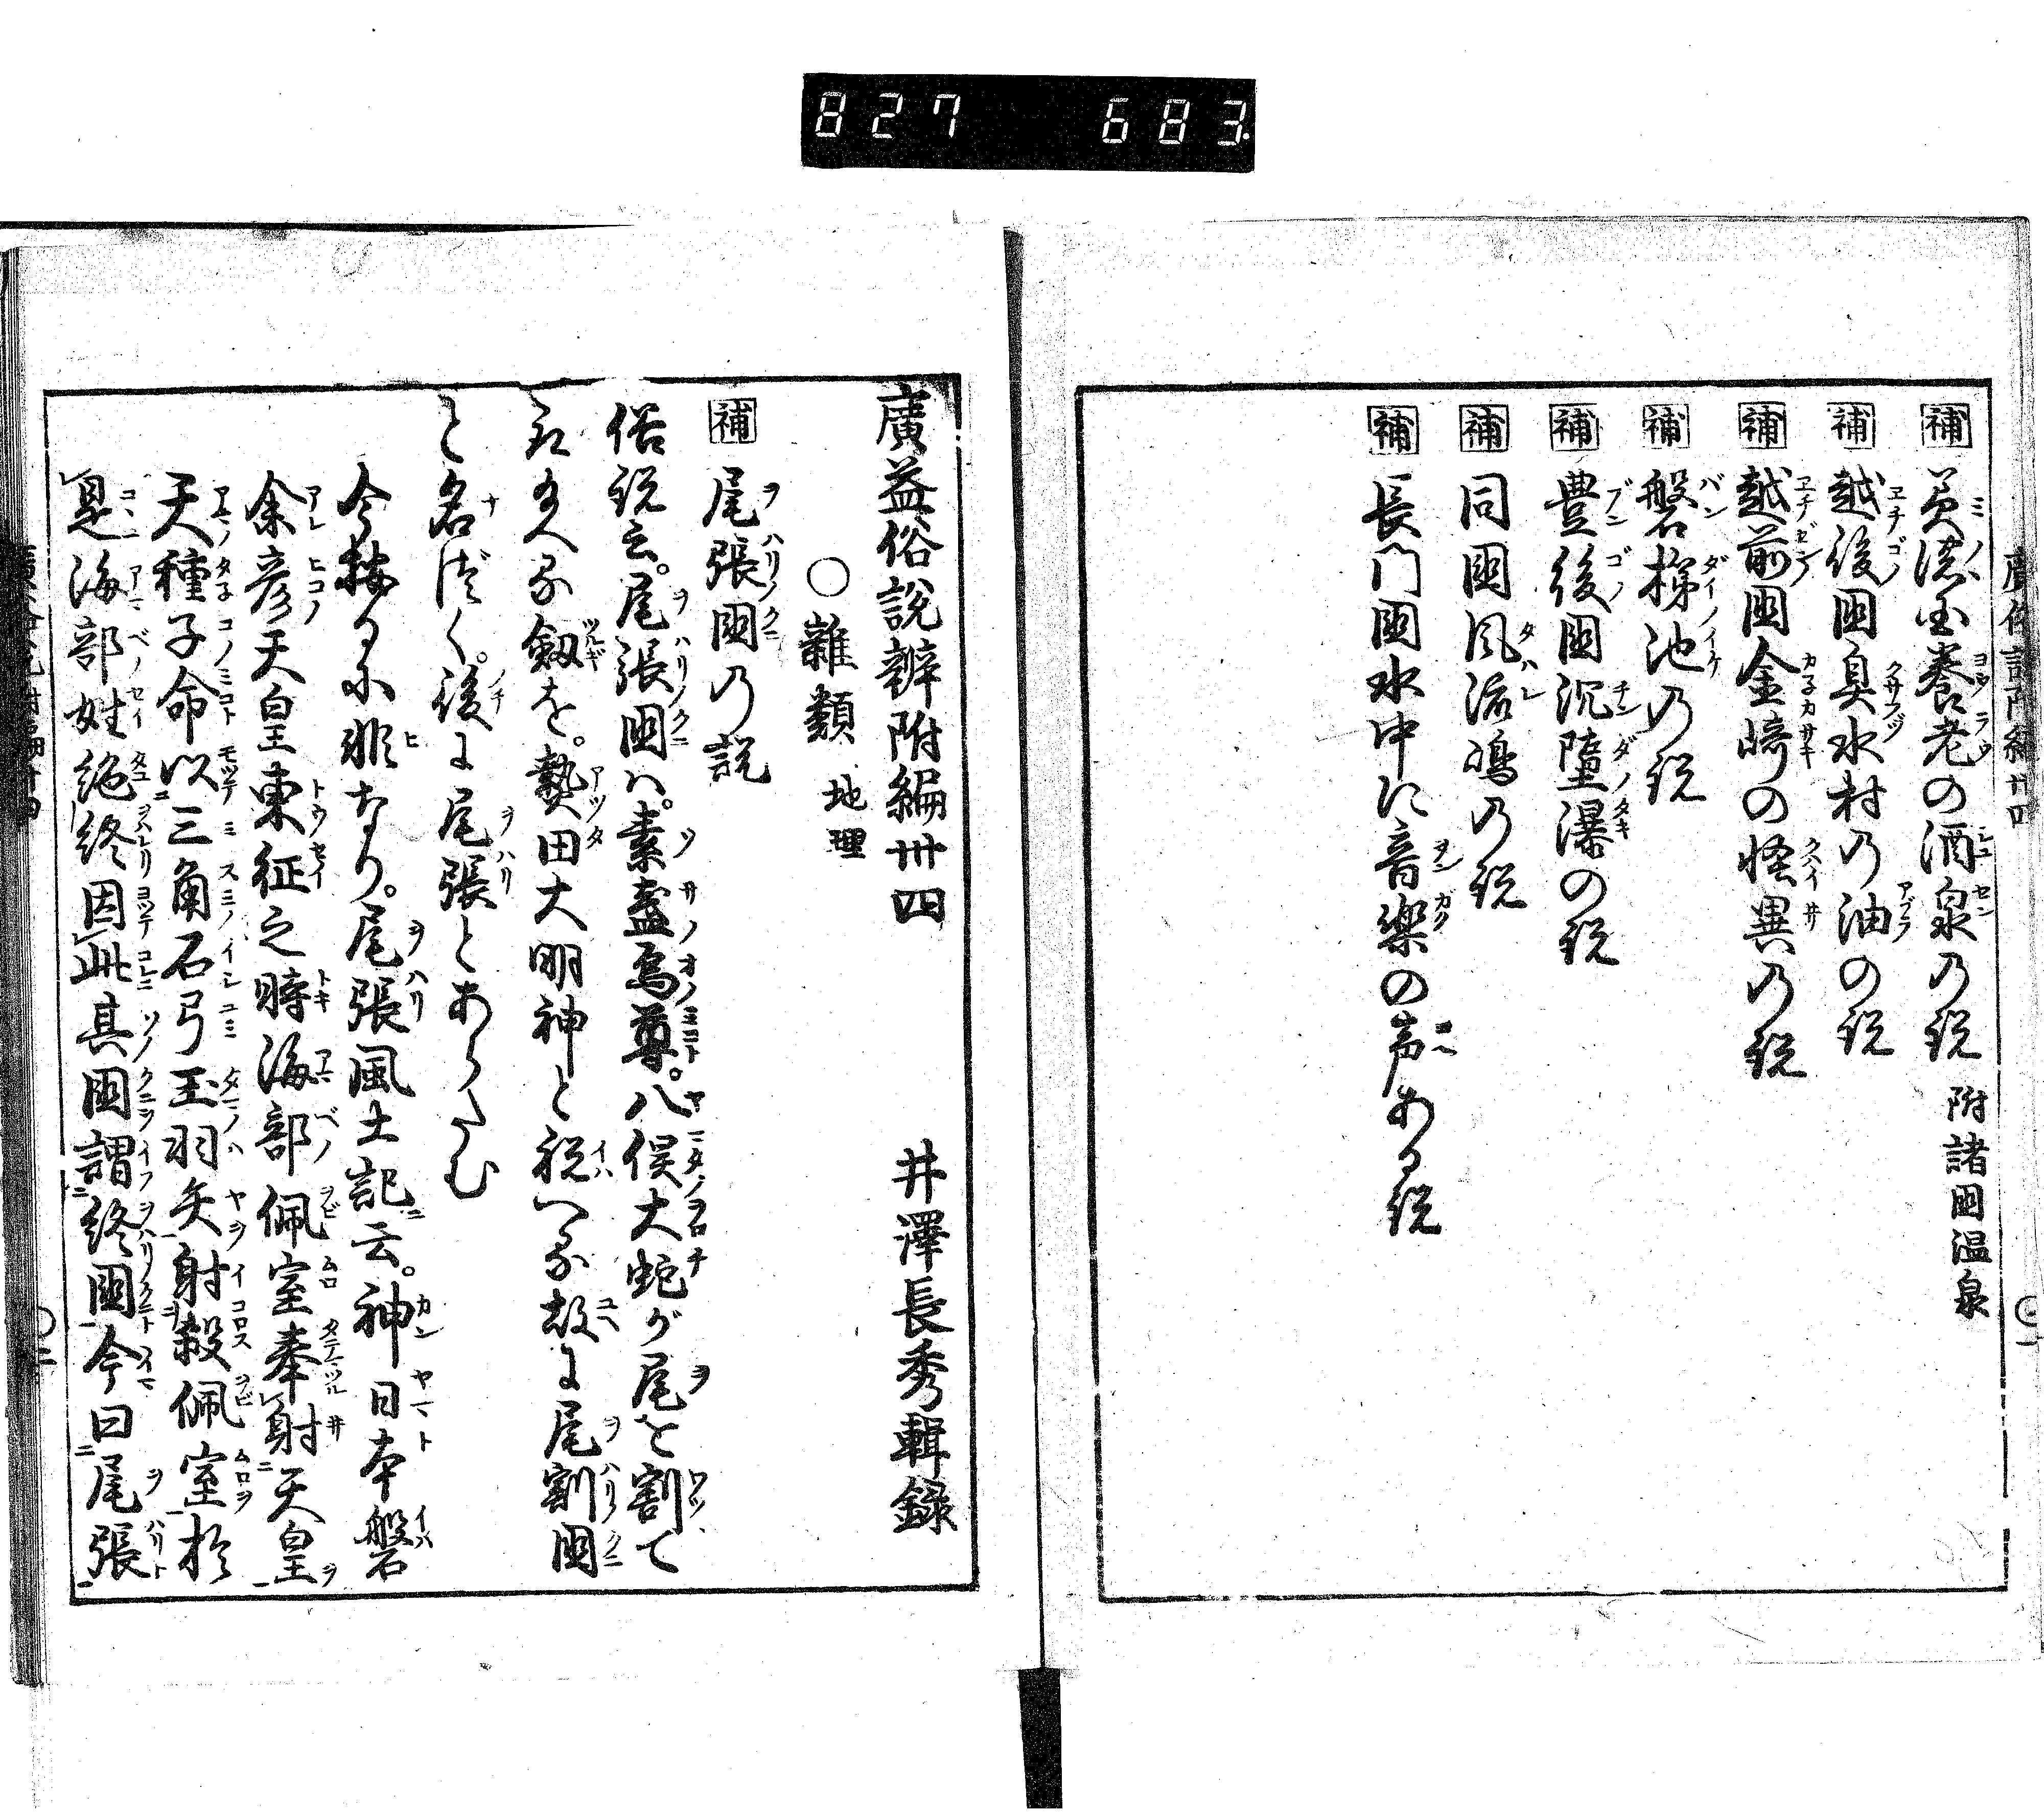 827 683.
補 美濃国養老の酒泉乃説 附諸國温泉
補 越後國臭水村乃油の説
補 越前國金﨑の怪異乃説
補 磐梯池乃説
補 豊後國沉墮瀑の説
補 同國風流嶋乃説
補 長門國水中に音楽の声ある説
廣益俗說辨附編卅四 井澤長秀輯録
○雜類 地理
補 尾張國乃説
俗説云。尾張國ハ。素盞烏尊。八俣大蛇が尾を割て
え給へる劔を。㷀田大明神と祝へる故に尾割國
と名づく。後に尾張とあらたむ
今按るに非なり。尾張風土記云。神日本磐
余彦天皇東征之時海部佩室奉射天皇
天種子命以三角石弓玉羽矢射殺佩室於
是海部姓絶終因此其國謂終國今曰尾張